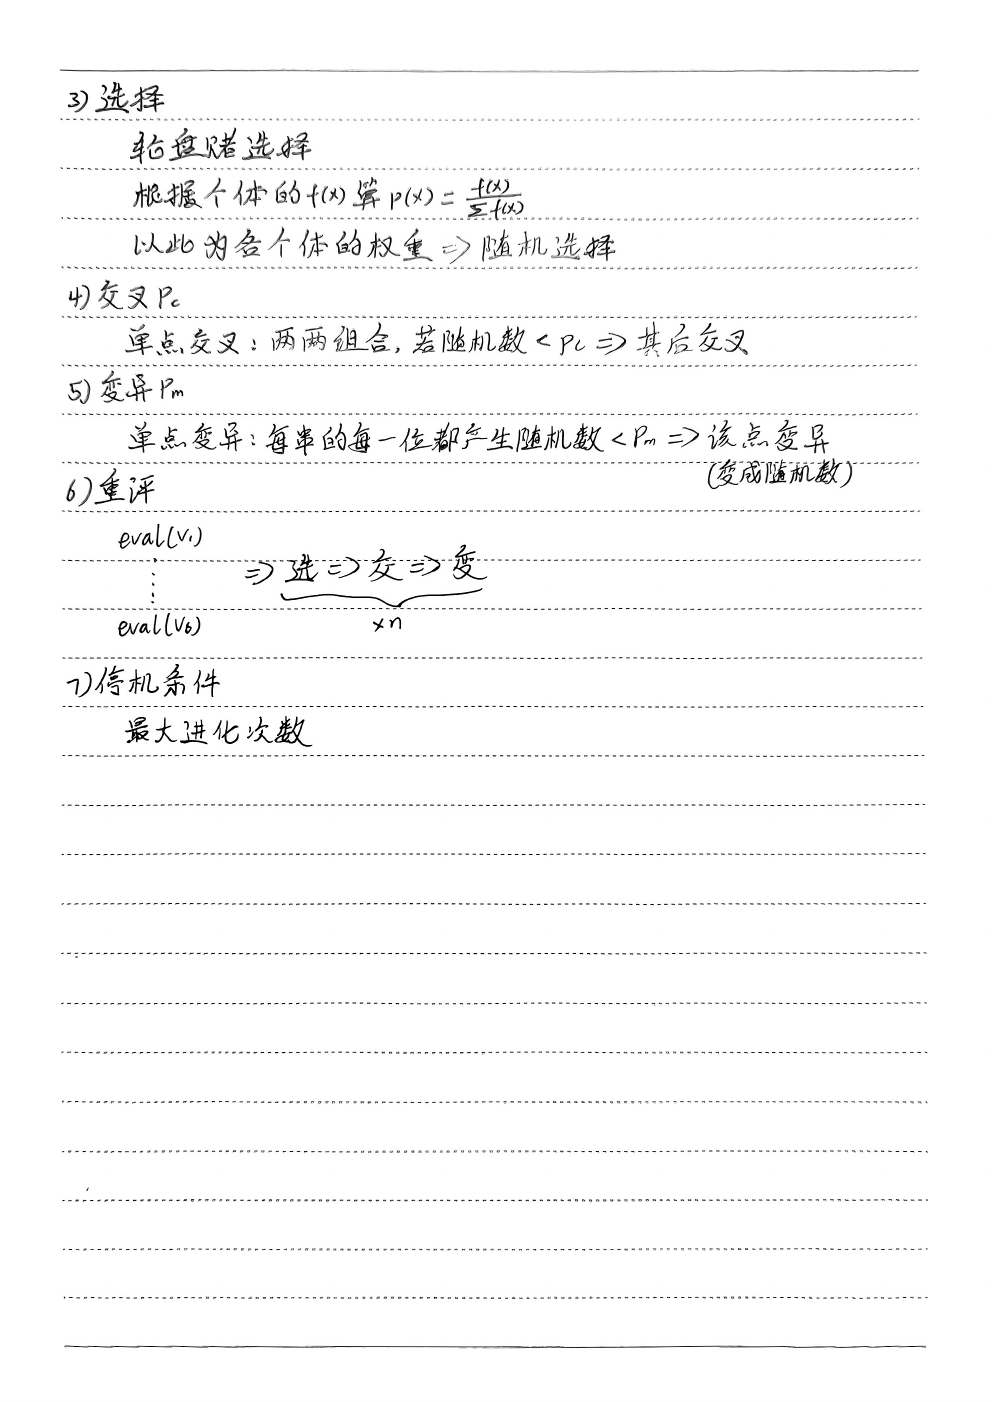 3) 选择
轮盘赌选择
根据个体的f(x)算p(x)=f(x)/Σf(x)
以此为各个体的权重=>随机选择
4) 交叉Pc
单点交叉:两两组合,若随机数<Pc=>其后交叉
5) 变异Pm
单点变异:每串的每一位都产生随机数<Pm=>该点变异
(变成随机数)
6) 重评
eval(V1)
⋮ => 选=>交=>变
eval(V6) ×n
7) 停机条件
最大进化次数